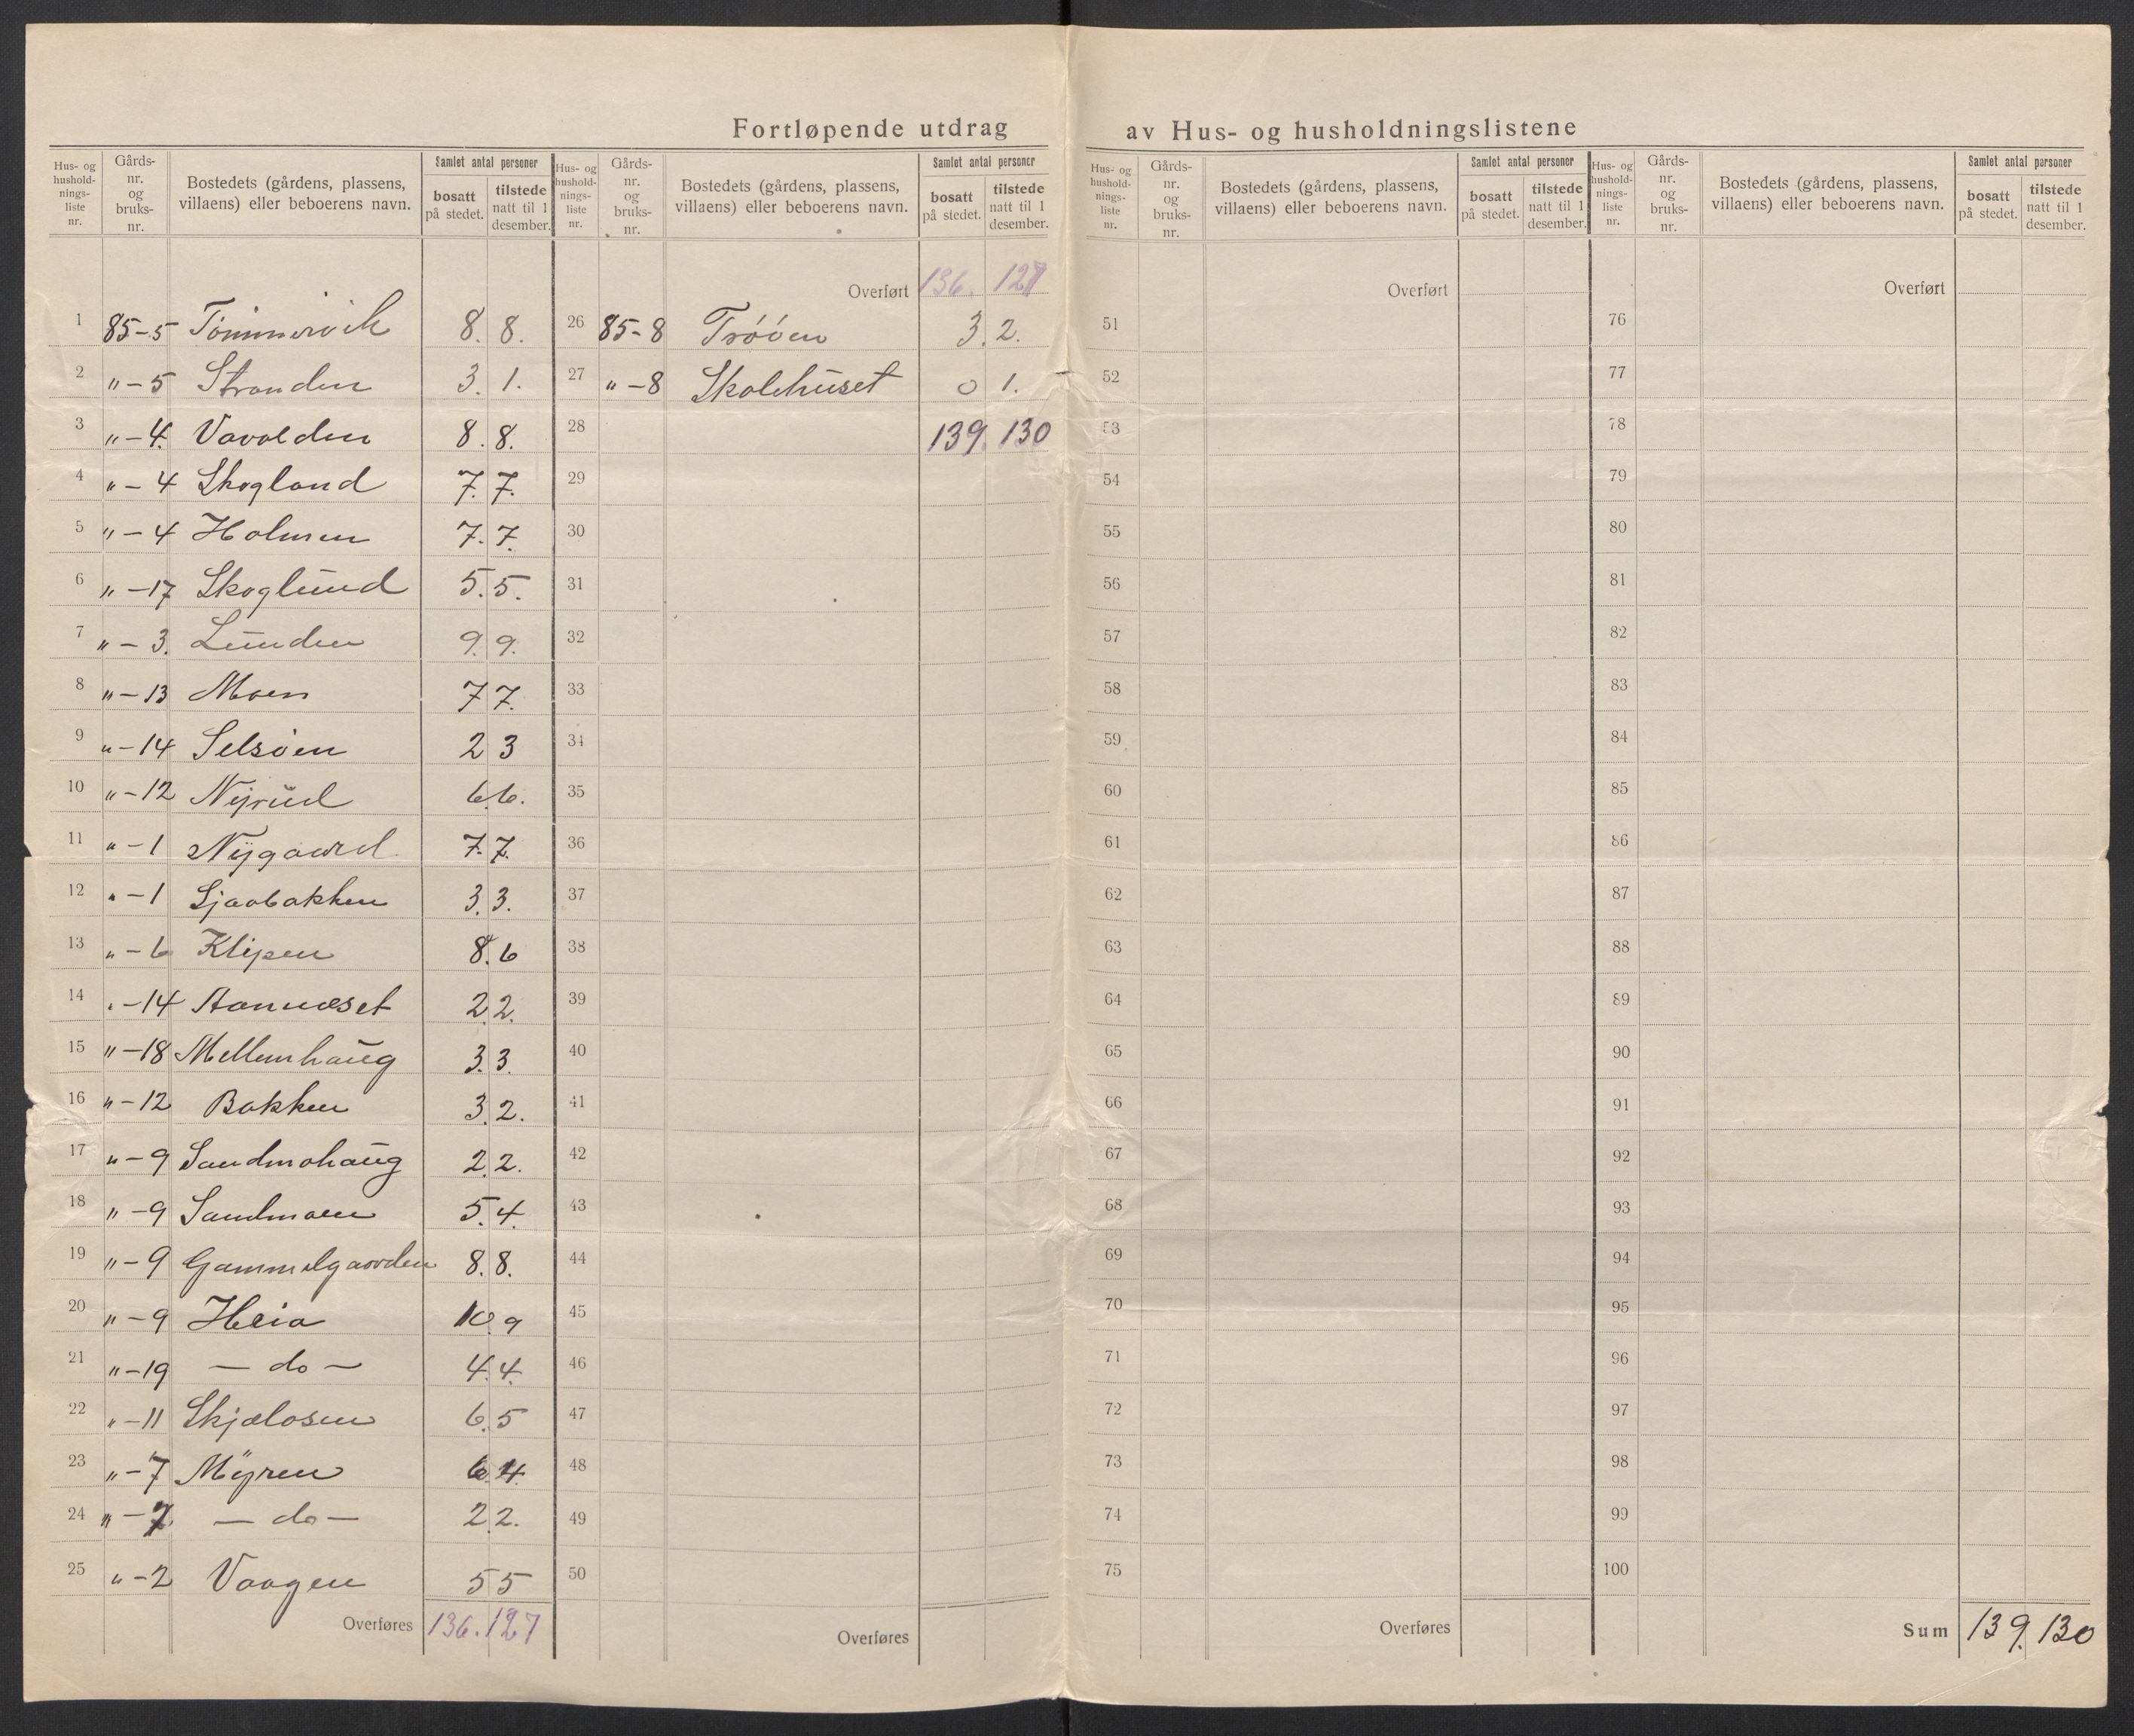 Fortløpende utdrag av Hus- og husholdningslistene
Hus- og husholdnings-liste nr. Gårds-nr. og bruks-nr. Bostedets (gårdens, plassens, villaens) eller beboerens navn. Samlet antal personer bosatt på stedet. tilstede natt til 1 desember.
1 85-5 Tømmervik 8. 8.
2 " - 5 Stranden 3. 1.
3 " - 4. Vavolden 8. 8.
4 " - 4 Skogland 7. 7.
5 " - 4 Holmen 7. 7.
6 " - 17 Skoglund 5. 5.
7 " - 3. Lunden 9. 9.
8 " - 13 Moen 7 7.
9 " - 14 Selsøen 2 3
10 " - 12 Nyrud 6. 6.
11 " - 1 Nygaard 7. 7.
12 " - 1 Sjaabakken 3. 3.
13 " - 6 Klipen 8. 6
14 " - 14 Aannæset 2 2.
15 " - 18 Mellemhaug 3. 3.
16 " - 12 Bakken 3. 2.
17 " - 9 Sandmohaug 2. 2.
18 " - 9 Sandmoen 5. 4.
19 " - 9 Gammelgaarden 8. 8.
20 " - 9 Heia 10. 9
21 " - 19 — do — 4. 4.
22 " - 11 Skjelosen 6. 5
23 " - 7 Myren 6. 4
24 " - 7. — do — 2 2.
25 " - 2 Vaagen 5 5
Overføres 136. 127
Hus- og husholdnings-liste nr. Gårds-nr. og bruks-nr. Bostedets (gårdens, plassens, villaens) eller beboerens navn. Samlet antal personer bosatt på stedet. tilstede natt til 1 desember.
Overført 136. 127
26 85-8 Trøøen 3. 2.
27 " - 8 Skolehuset 0 1.
28 139. 130
29
30
31
32
33
34
35
36
37
38
39
40
41
42
43
44
45
46
47
48
49
50
Overføres
Hus- og husholdnings-liste nr. Gårds-nr. og bruks-nr. Bostedets (gårdens, plassens, villaens) eller beboerens navn. Samlet antal personer bosatt på stedet. tilstede natt til 1 desember.
Overført
51
52
53
54
55
56
57
58
59
60
61
62
63
64
65
66
67
68
69
70
71
72
73
74
75
Overføres
Hus- og husholdnings-liste nr. Gårds-nr. og bruks-nr. Bostedets (gårdens, plassens, villaens) eller beboerens navn. Samlet antal personer bosatt på stedet. tilstede natt til 1 desember.
Overført
76
77
78
79
80
81
82
83
84
85
86
87
88
89
90
91
92
93
94
95
96
97
98
99
100
Sum 139. 130